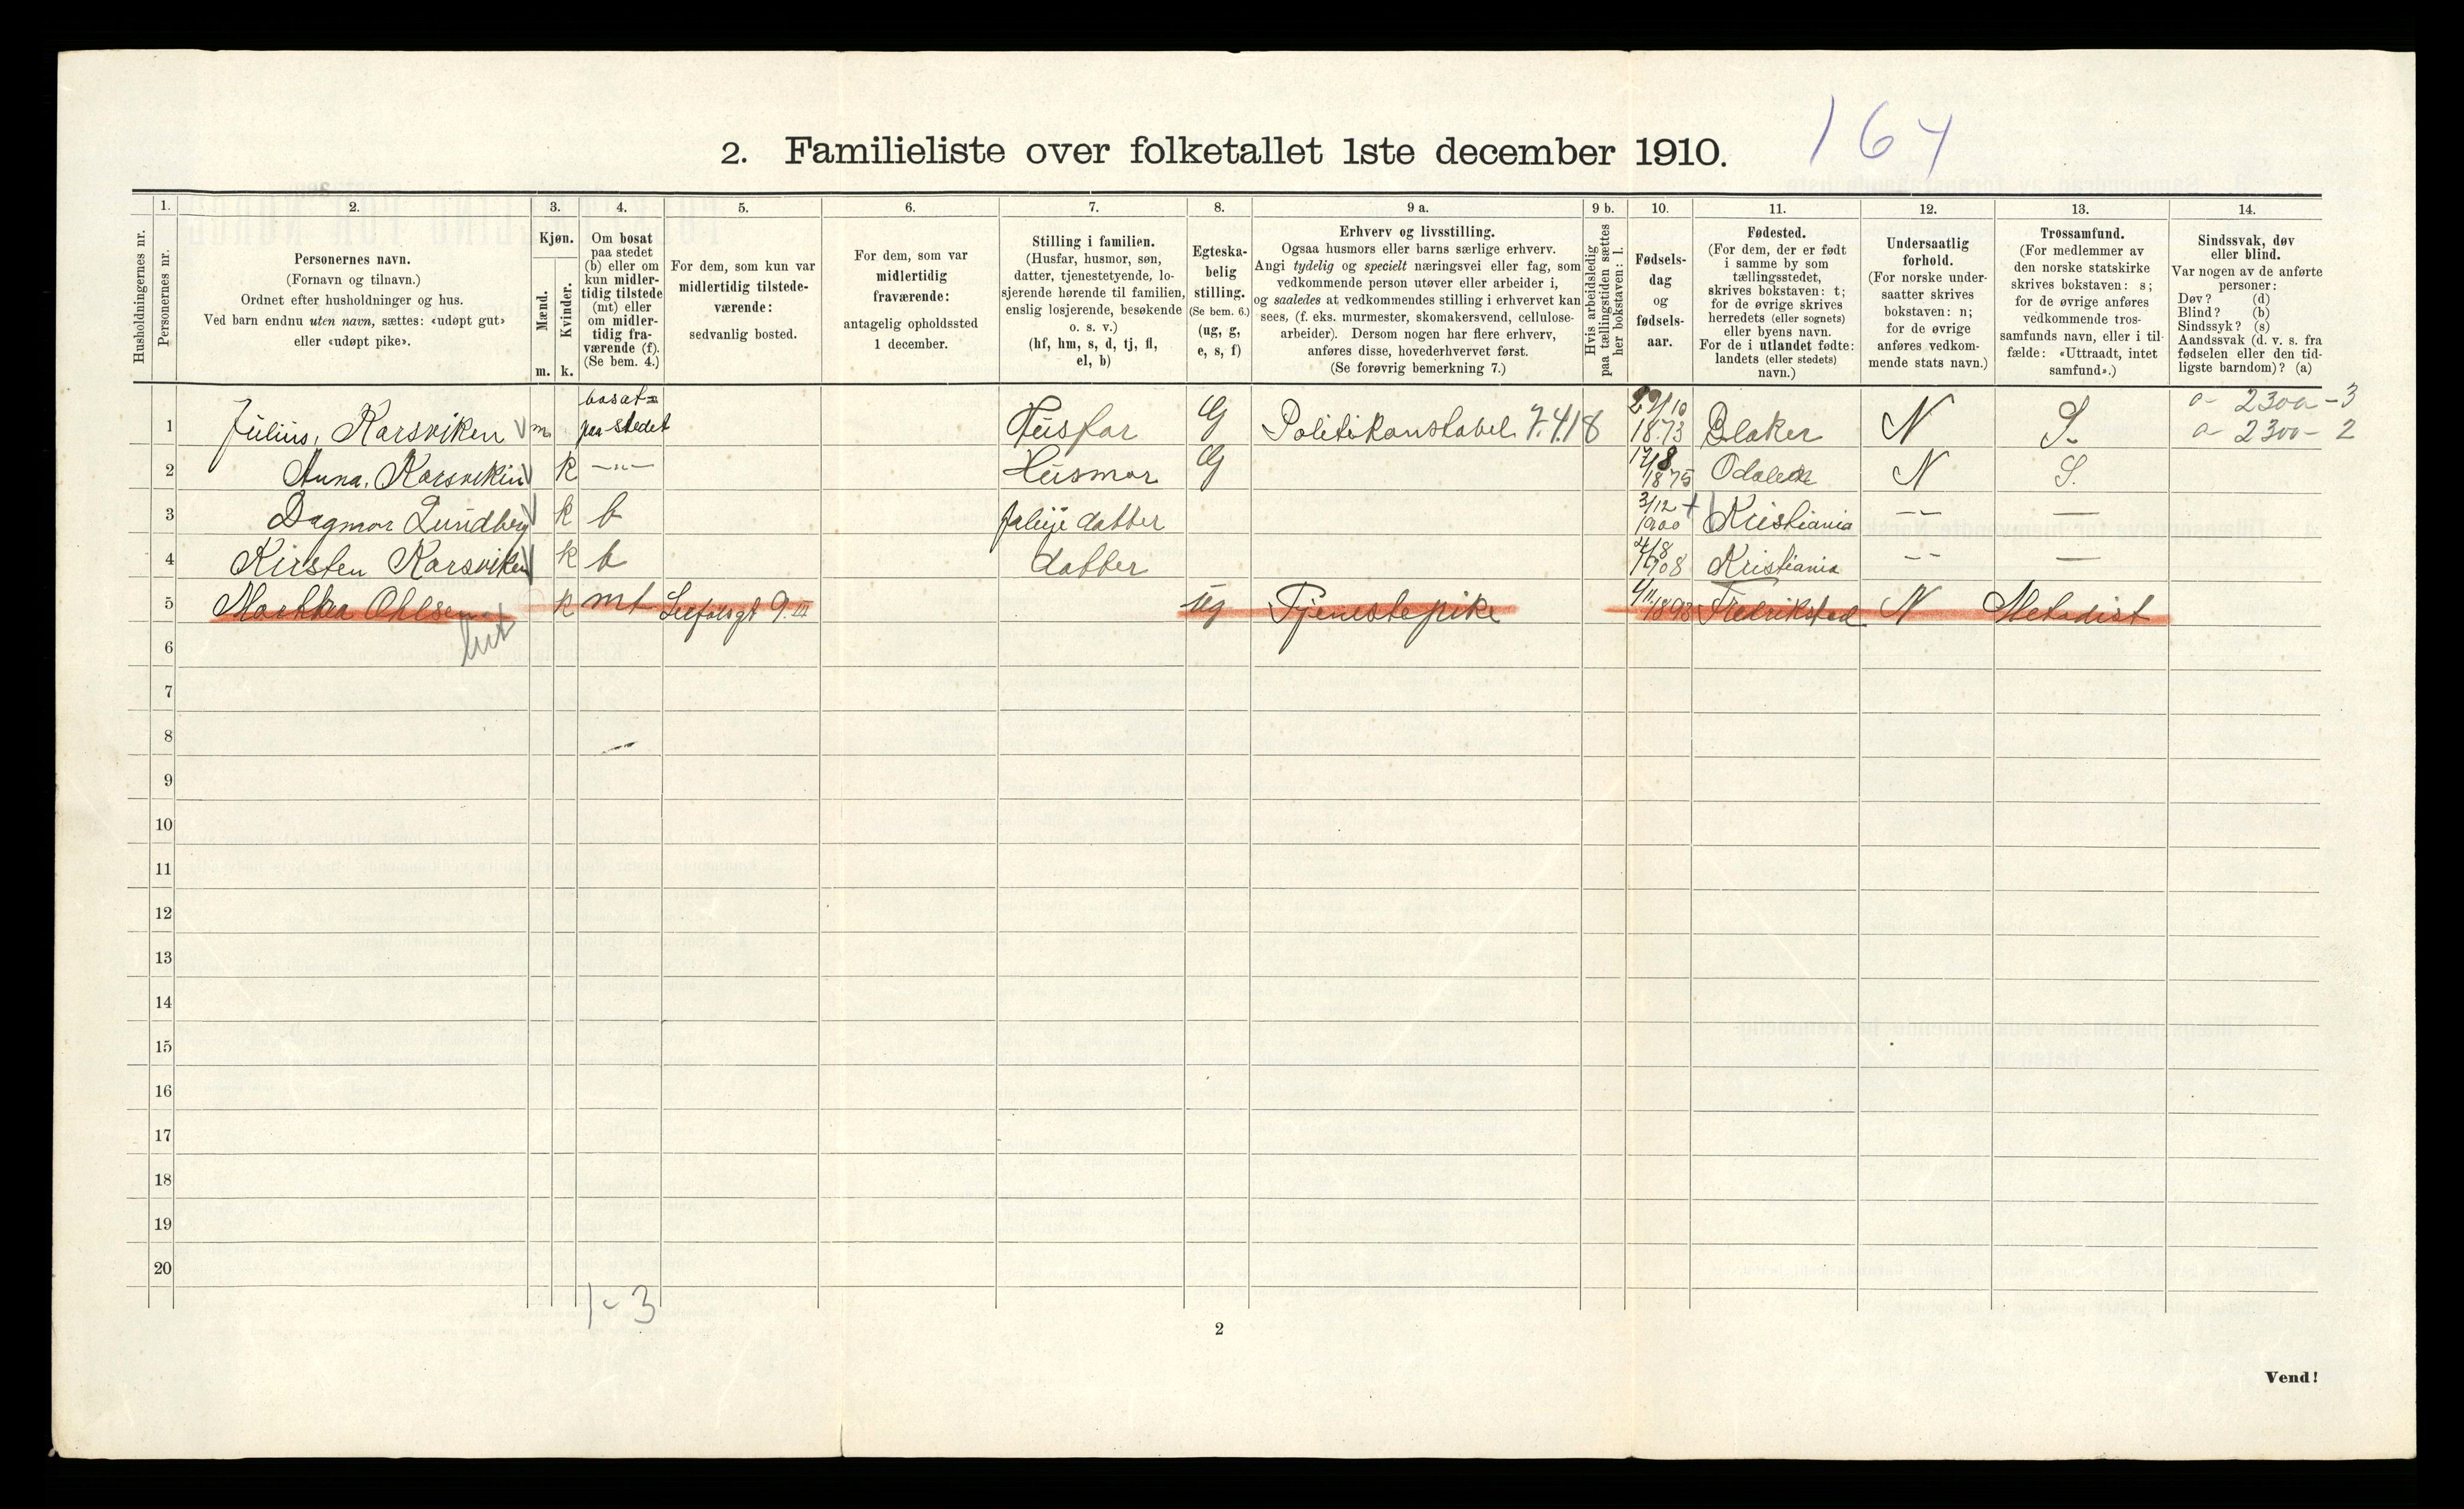 164
2. Familieliste over folketallet 1ste december 1910.
Husholdningernes nr.
1. Personernes nr.
2. Personernes navn.
(Fornavn og tilnavn.)
Ordnet efter husholdninger og hus.
Ved barn endnu uten navn, sættes: «udøpt gut»
eller «udøpt pike».
3. Kjøn.
Mænd. Kvinder.
m. k.
4. Om bosat
paa stedet
(b) eller om
kun midler-
tidig tilstede
(mt) eller
om midler-
tidig fra-
værende (f).
(Se bem. 4.)
5. For dem, som kun var
midlertidig tilstede-
værende:
sedvanlig bosted.
6. For dem, som var
midlertidig
fraværende:
antagelig opholdssted
1 december.
7. Stilling i familien.
(Husfar, husmor, søn,
datter, tjenestetyende, lo-
sjerende hørende til familien,
enslig losjerende, besøkende
o. s. v.)
(hf, hm, s, d, tj, fl,
el, b)
8. Egteska-
belig
stilling.
(Se bem. 6.)
(ug, g,
e, s, f)
9 a. Erhverv og livsstilling.
Ogsaa husmors eller barns særlige erhverv.
Angi tydelig og specielt næringsvei eller fag, som
vedkommende person utøver eller arbeider i,
og saaledes at vedkommendes stilling i erhvervet kan
sees, (f. eks. murmester, skomakersvend, cellulose-
arbeider). Dersom nogen har flere erhverv,
anføres disse, hovederhvervet først.
(Se forøvrig bemerkning 7.)
9 b. Hvis arbeidsledig
paa tællingstiden sættes
her bokstaven: l.
10. Fødsels-
dag
og
fødsels-
aar.
11. Fødested.
(For dem, der er født
i samme by som
tællingsstedet,
skrives bokstaven: t;
for de øvrige skrives
herredets (eller sognets)
eller byens navn.
For de i utlandet fødte:
landets (eller stedets)
navn.)
12. Undersaatlig
forhold.
(For norske under-
saatter skrives
bokstaven: n;
for de øvrige
anføres vedkom-
mende stats navn.)
13. Trossamfund.
(For medlemmer av
den norske statskirke
skrives bokstaven: s;
for de øvrige anføres
vedkommende tros-
samfunds navn, eller i til-
fælde: «Uttraadt, intet
samfund».)
14. Sindssvak, døv
eller blind.
Var nogen av de anførte
personer:
Døv? (d)
Blind? (b)
Sindssyk? (s)
Aandssvak (d. v. s. fra
fødselen eller den tid-
ligste barndom)? (a)
1 Julius, Karsviken m bosat paa stedet Husfar G Politikonstabel 7.418 1873 Blaker N S. a- 2300-3
a- 2300-2
2 Anna, Karsviken k —"— Husmor G 17/8 1875 N S.
3 Dagmar Lundberg k b datter 3/12 1900 Kristiania — — —
4 Kirsten Karsviken k b datter Kristiania — — —
5 Marthea Ohlsen k mt 9 III ug Tjenestepike 1893 Fredrikstad N Metodist
6
7
8
9
10
11
12
13
14
15
16
17
18
19
20
1-3
2
Vend!